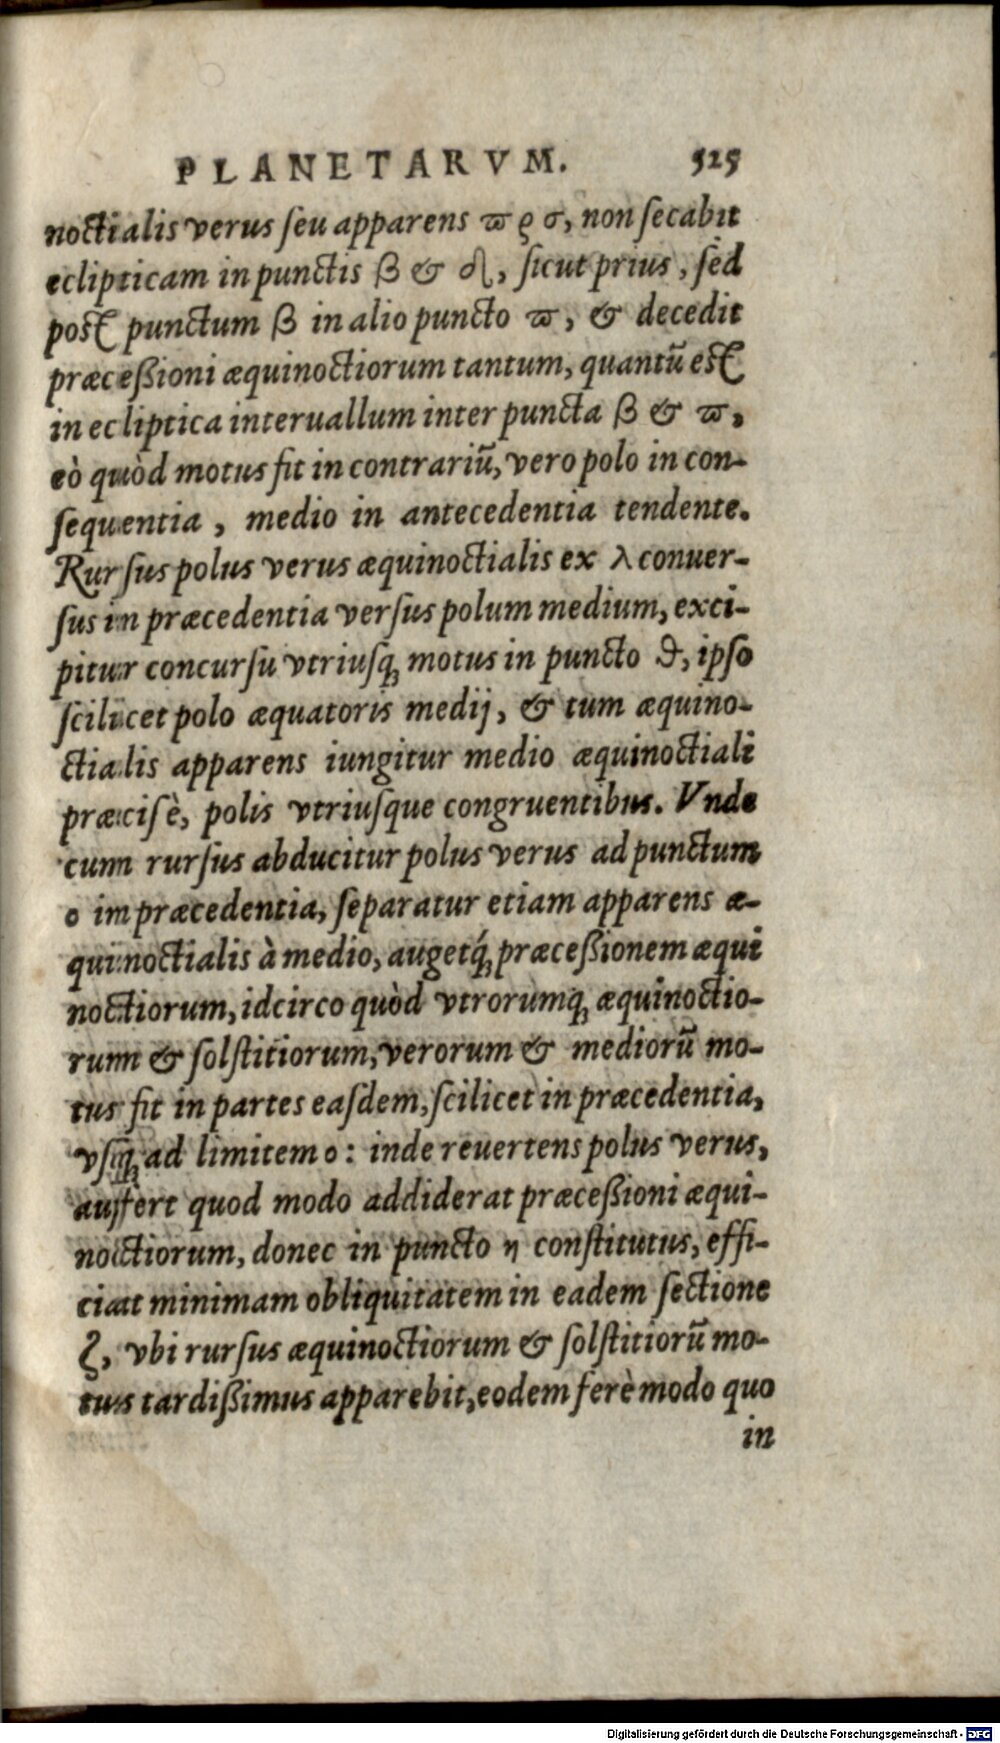 PLANETARVM. 525
noctialis verus ſeu apparens ϖ ϱ σ, non ſecabit
eclipticam in punctis β & δ, ſicut prius, ſed
poſt punctum β in alio puncto ϖ, & decedit
præceſſioni æquinoctiorum tantum, quantū eſt
in ecliptica interuallum inter puncta β & ϖ,
eò quòd motus fit in contrariū, vero polo in con-
ſequentia, medio in antecedentia tendente.
Rurſus polus verus æquinoctialis ex λ conuer-
ſus in præcedentia verſus polum medium, exci-
pitur concurſu vtriuſq; motus in puncto ϑ, ipſo
ſcilicet polo æquatoris medij, & tum æquino-
ctialis apparens iungitur medio æquinoctiali
præciſè, polis vtriuſque congruentibus. Vnde
cum rurſus abducitur polus verus ad punctum
o in præcedentia, ſeparatur etiam apparens æ-
quinoctialis à medio, augetq́; præceſſionem æqui
noctiorum, idcirco quòd vtrorumq; æquinoctio-
rum & ſolſtitiorum, verorum & mediorū mo-
tus fit in partes eaſdem, ſcilicet in præcedentia,
vſq; ad limitem o: inde reuertens polus verus,
auffert quod modo addiderat præceſſioni æqui-
noctiorum, donec in puncto η conſtitutus, effi-
ciat minimam obliquitatem in eadem ſectione
ζ, vbi rurſus æquinoctiorum & ſolſtitiorū mo-
tus tardiſſimus apparebit, eodem ferè modo quo
in
Digitalisierung gefördert durch die Deutsche Forschungsgemeinschaft - DFG